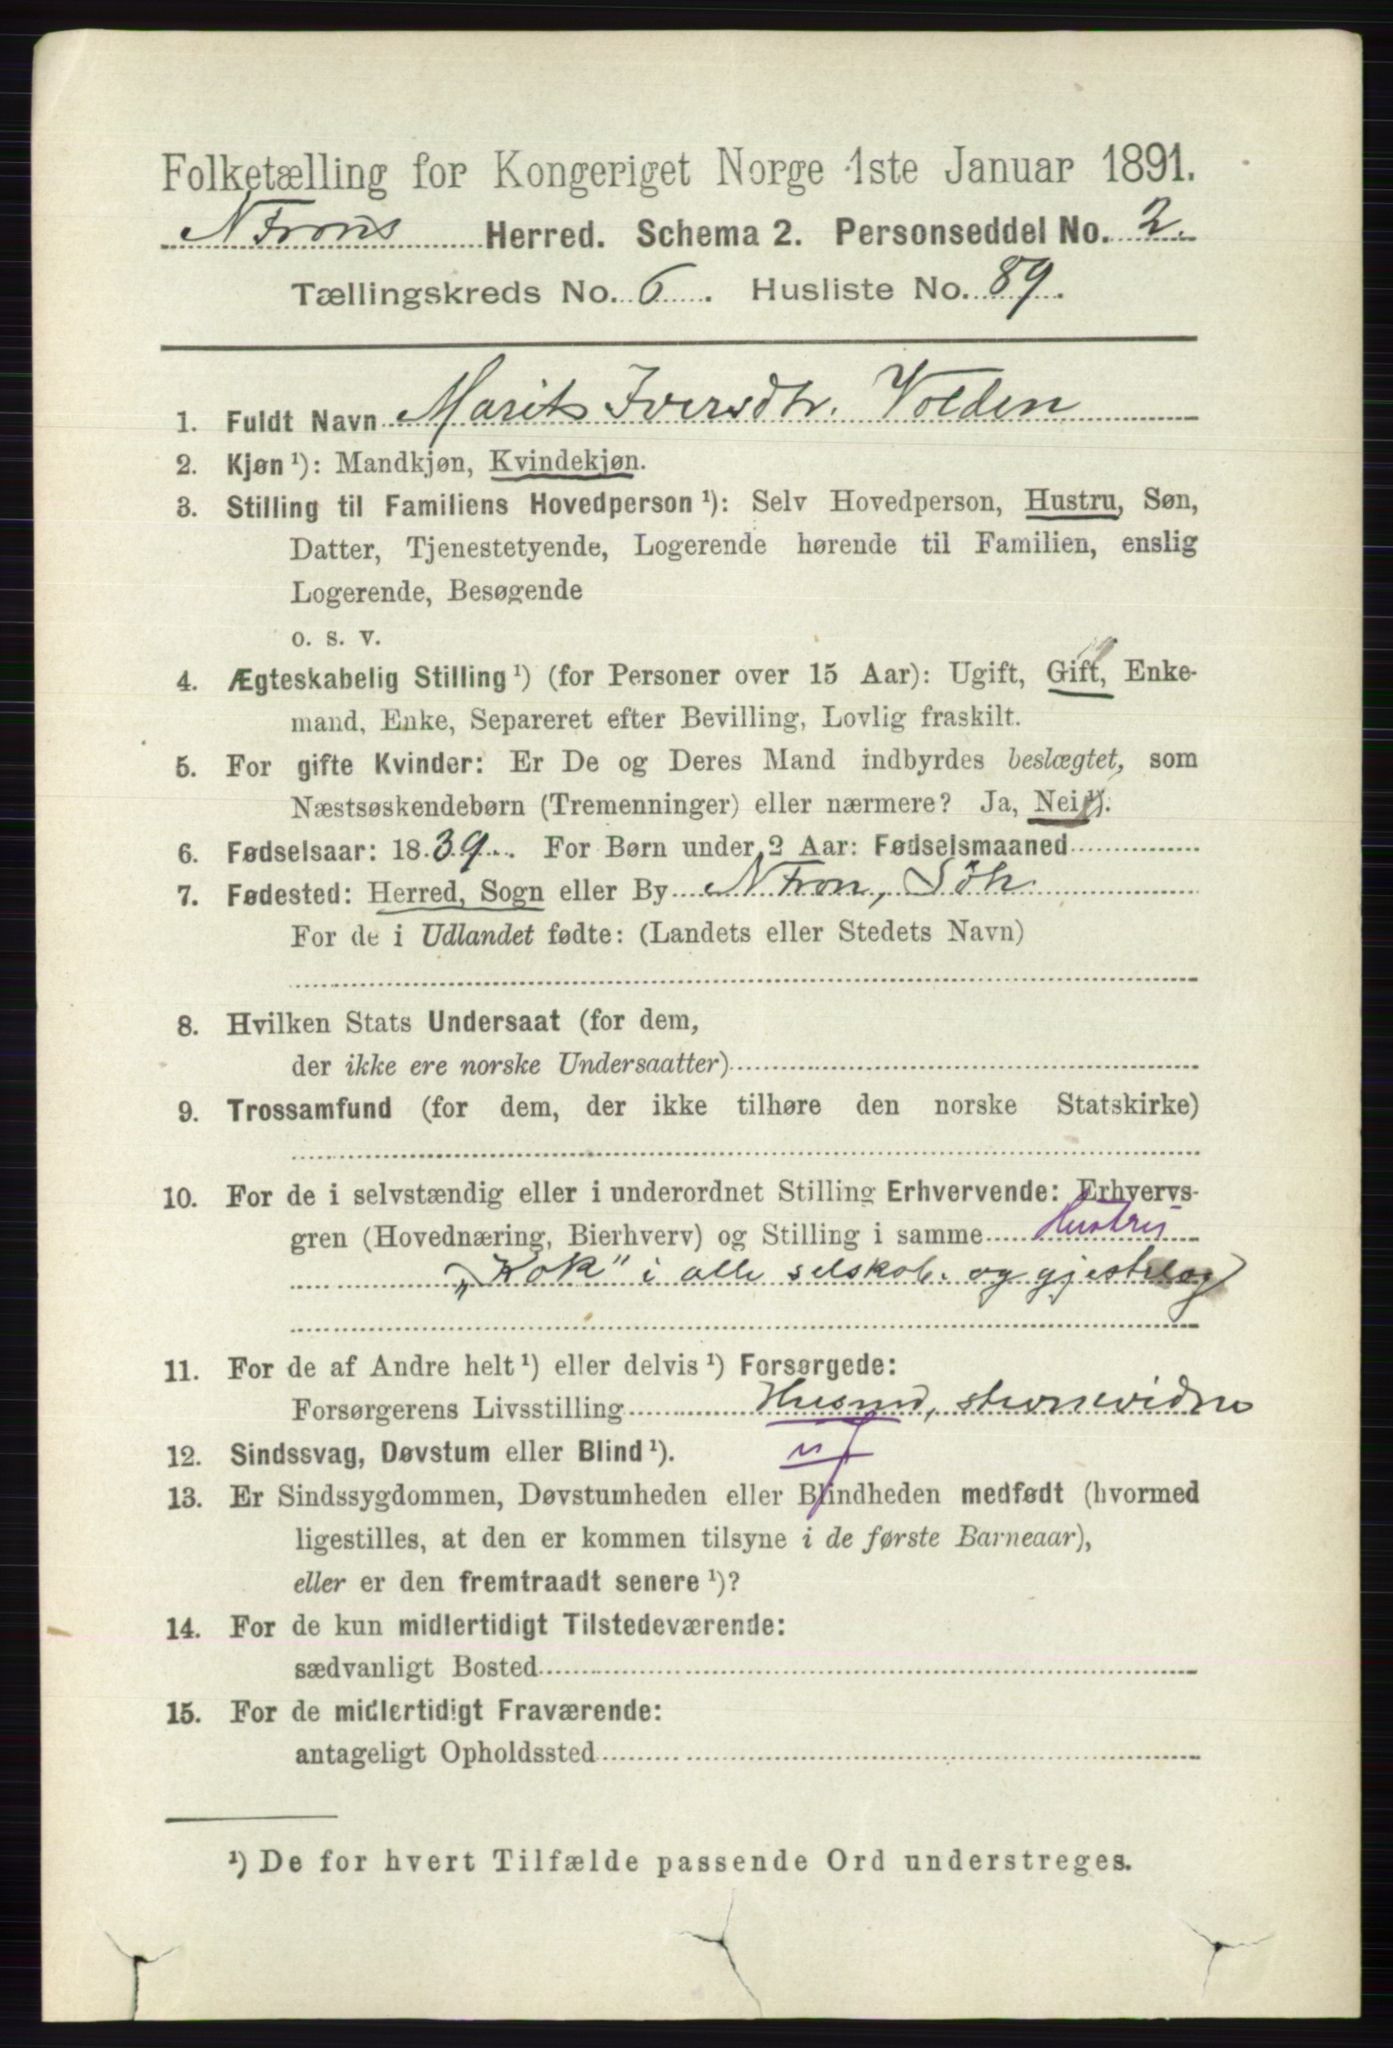 Folketælling for Kongeriget Norge 1ste Januar 1891.
N Frons Herred. Schema 2. Personseddel No. 2.
Tællingskreds No. 6. Husliste No. 89.
1. Fuldt Navn Marit Iversdtr. Volden
2. Kjøn ¹): Mandkjøn, Kvindekjøn.
3. Stilling til Familiens Hovedperson ¹): Selv Hovedperson, Hustru, Søn,
Datter, Tjenestetyende, Logerende hørende til Familien, enslig
Logerende, Besøgende
o. s. v.
4. Ægteskabelig Stilling ¹) (for Personer over 15 Aar): Ugift, Gift, Enke-
mand, Enke, Separeret efter Bevilling, Lovlig fraskilt.
5. For gifte Kvinder: Er De og Deres Mand indbyrdes beslægtet, som
Næstsøskendebørn (Tremenninger) eller nærmere? Ja, Nei ¹).
6. Fødselsaar: 1839. For Børn under 2 Aar: Fødselsmaaned
7. Fødested: Herred, Sogn eller By N Fron, Söh.
For de i Udlandet fødte: (Landets eller Stedets Navn)
8. Hvilken Stats Undersaat (for dem,
der ikke ere norske Undersaatter)
9. Trossamfund (for dem, der ikke tilhøre den norske Statskirke)
10. For de i selvstændig eller i underordnet Stilling Erhvervende: Erhvervs-
gren (Hovednæring, Bierhverv) og Stilling i samme Hustru
„Kok" i alle selskab. og gjestelag
11. For de af Andre helt ¹) eller delvis ¹) Forsørgede:
Forsørgerens Livsstilling Husmd,
12. Sindssvag, Døvstum eller Blind ¹).
13. Er Sindssygdommen, Døvstumheden eller Blindheden medfødt (hvormed
ligestilles, at den er kommen tilsyne i de første Barneaar),
eller er den fremtraadt senere ¹)?
14. For de kun midlertidigt Tilstedeværende:
sædvanligt Bosted
15. For de midlertidigt Fraværende:
antageligt Opholdssted
¹) De for hvert Tilfælde passende Ord understreges.